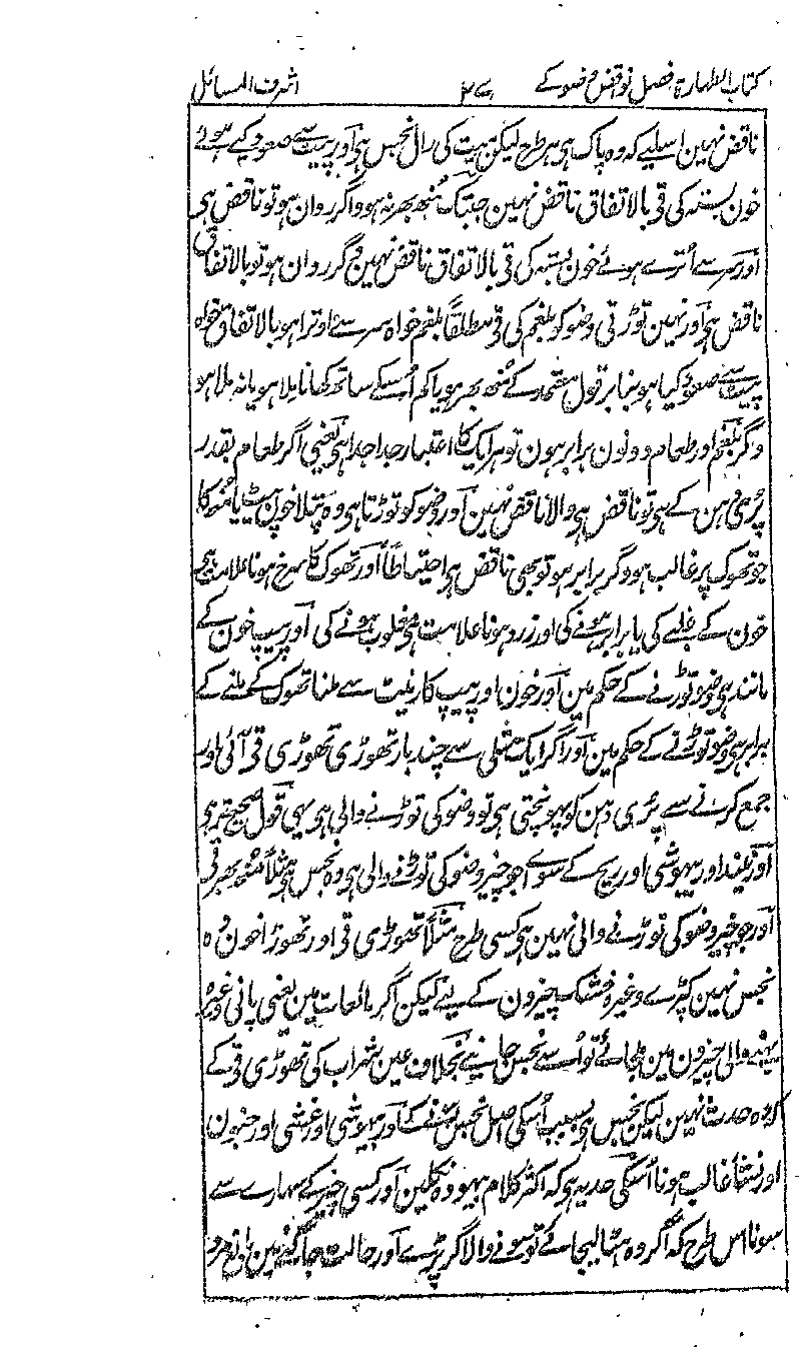 کتاب الطہارۃ فصل نواقض وضو کے ۲۷ اشرف المسائل
ناقض نہین اسلیے کہ وہ پاک ہی ہر طرح لیکن میت کی رال نجس ہی اور پیٹ سے صعود کیے ہوئے
خون بستہ کی قی بالاتفاق ناقض نہین جبتک منھ بھر نہ ہو و اگر روان ہو تو ناقض ہی
اور سر سے اُترے ہوئے خون بستہ کی قی بالاتفاق ناقض نہین و گر روان ہو تو بالاتفاق
ناقض ہی اور نہین توڑتی وضو کو بلغم کی قی مطلقاً بلغم خواہ سر سے اوترا ہو بالاتفاق خواہ
پیٹ سے صعود کیا ہو بنا بر قول معتمد کے منھ بھر ہو یا کم اُسکے ساتھ کھانا ملا ہو یا نہ ملا ہو
و گر بلغم اور طعام دونون برابر ہون تو ہر ایک کا اعتبار جدا جدا ہی یعنی اگر طعام بقدر
پُری دہن کے ہی تو ناقض ہی والا ناقض نہین اور وضو کو توڑتا ہی وہ پتلا خون پیٹ یا منھ کا
جو تھوک پر غالب ہو و گر برابر ہو تو بھی ناقض ہی احتیاطاً اور تھوک کا سرخ ہونا علامت ہی
خون کے غلبے کی یا برابر ہونے کی اور زرد ہونا علامت ہی مغلوب ہونے کی اور پیپ خون کے
مانند ہی وضو توڑنے کے حکم مین اور خون اور پیپ کا رینٹ سے ملنا تھوک کے ملنے کے
برابر ہی وضو توڑنے کے حکم مین اور اگر ایک متلی سے چند بار تھوڑی تھوڑی قی آئی اور
جمع کرنے سے پُری دہن کو پہونچتی ہی تو وضو کی توڑنے والی ہی یہی قول صحیح تر ہی
اور نیند اور بیہوشی اور ریح کے سوائے جو چیز وضو کی توڑنے والی ہی وہ نجس ہی مثلاً منھ بھر قی
اور جو چیز وضو کی توڑنے والی نہین ہی کسی طرح مثلاً تھوڑی قی اور تھوڑا خون وہ
نجس نہین کپڑے وغیرہ خشک چیزون کے لیے لیکن اگر مائعات مین یعنی پانی وغیرہ
بہنے والی چیزون مین ملجائے تو اُسے نجس جانیے بخلاف عین شراب کی تھوڑی قی کے
کہ وہ حدث نہین لیکن نجس ہی بسبب اُسکی اصل نجس ہونے کے اور بیہوشی اور غشی اور جنون
اور نشا غالب ہونا اُسکی حد یہ ہی کہ اکثر کلام بیہودہ نکلین اور کسی چیز کے سہارے سے
سونا اس طرح کہ اگر وہ ہٹا لیجاے تو سونے والا گر پڑے اور حالت جاگنے مین بالغ مرد